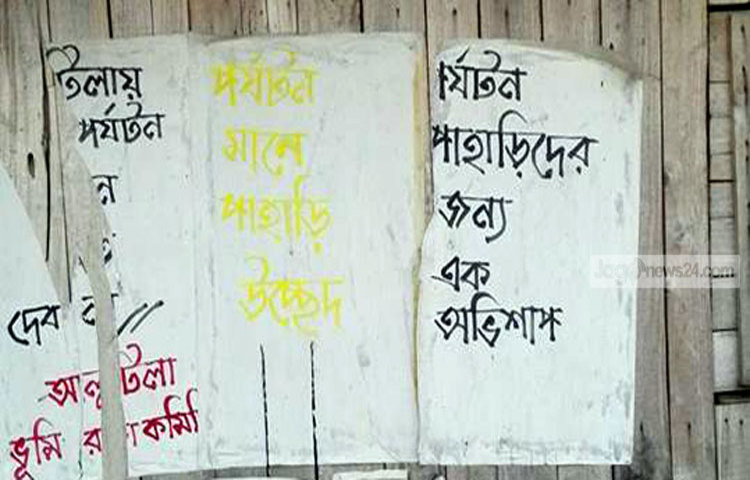 টিলায়
পর্যটন
দেব না //
আলুটিলা
ভূমি রক্ষা কমিটি
পর্যটন
মানে
পাহাড়ি
উচ্ছেদ
র্যটন
পাহাড়িদের
জন্য
এক
অভিশাপ
Jagonews24.com